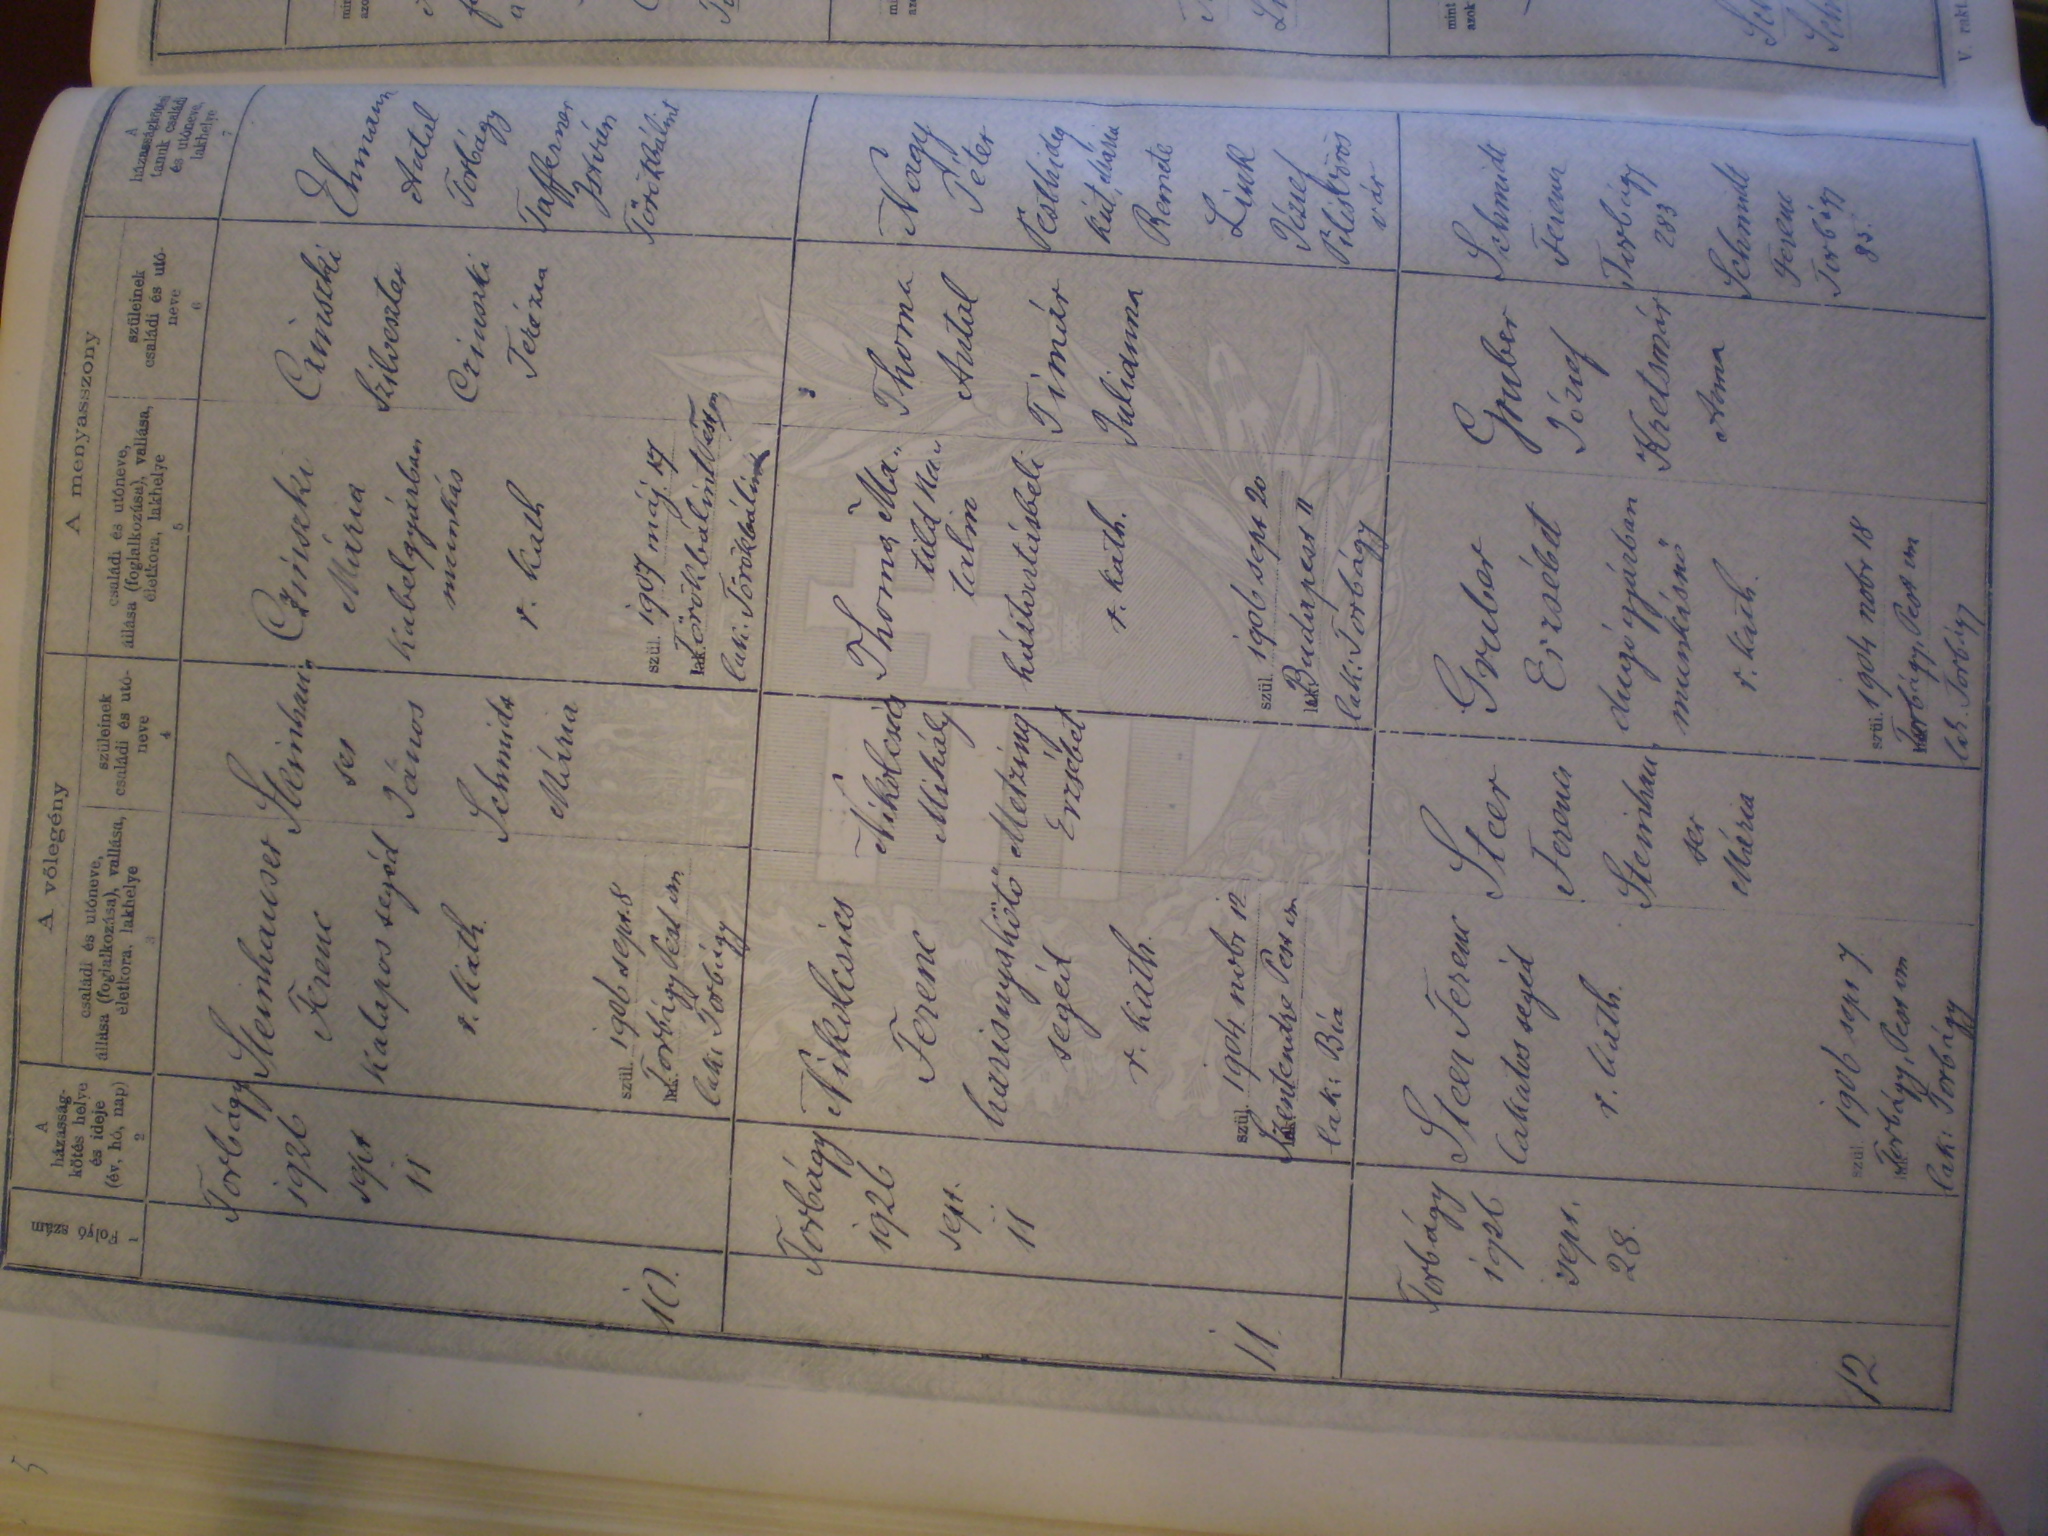 A vőlegény
A menyasszony
Folyó szám
A házasság-
kötés helye
és ideje
(év, hó, nap)
családi és utóneve,
állása (foglalkozása), vallása,
életkora, lakhelye
szüleinek
családi és utó-
neve
családi és utóneve,
állása (foglalkozása), vallása,
életkora, lakhelye
szüleinek
családi és utó-
neve
A
házasságkötési
tanuk családi
és utóneve,
lakhelye
1
2
3
4
5
6
7
10.
Torbágy
1926
sept
11
Steinhauser
Ferenc
kalapos segéd
r. kath.
szül. 1906 sept. 8
Torbágy Pest vm
lak: Torbágy
Steinhau
ser
János
Schmidt
Mária
Czinszki
Mária
kabelgyárban
munkás
r. kath
szül. 1907 máj. 17
Törökbálint Pest vm
lak: Törökbálint
Czinszki
Szilveszter
Czinszki
Terézia
Ehmann
Antal
Torbágy
Tafferner
István
Törökbálint
11
Torbágy
1926
sept.
11
Nikolcsics
Ferenc
harisnyakötő
segéd
r. kath.
szül. 1904 nobr 12
Szentendre Pest vm
lak: Bia
Nikolcsics
Mihály
Metzing
Erzsébet
Thoma Ma-
tild Ka-
talin
háztartásbeli
r. kath.
szül. 1906 sept 20
Budapest II
lak: Torbágy
Thoma
Antal
Timár
Julianna
Nagy
Péter
Pesthideg
kút, Mária
Remete
Link
József
Pilisvörös
vár
12
Torbágy
1926
sept.
28.
Steer Ferenc
lakatos segéd
r. kath.
szül. 1906 sept 7.
Torbágy, Pest vm
lak: Torbágy
Steer
Ferenc
Steinhau
ser
Mária
Gruber
Erzsébet
dugógyárban
munkásnő
r. kath.
szül. 1904 nobr 18
Torbágy, Pest vm
lak. Torbágy
Gruber
József
Kretsmár
Anna
Schmidt
Ferenc
Torbágy
283
Schmidt
Ferenc
Torbágy
83.
V. rakt.
5